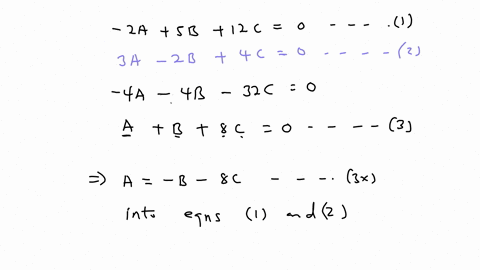 -2A + 5B + 12C = 0 - - - . (1)
3A - 2B + 4C = 0 - - - - (2)
-4A - 4B - 32C = 0
A + B + 8C = 0 - - - - (3)
⇒ A = -B - 8C - - - . (3x)
into eqns (1) and (2)